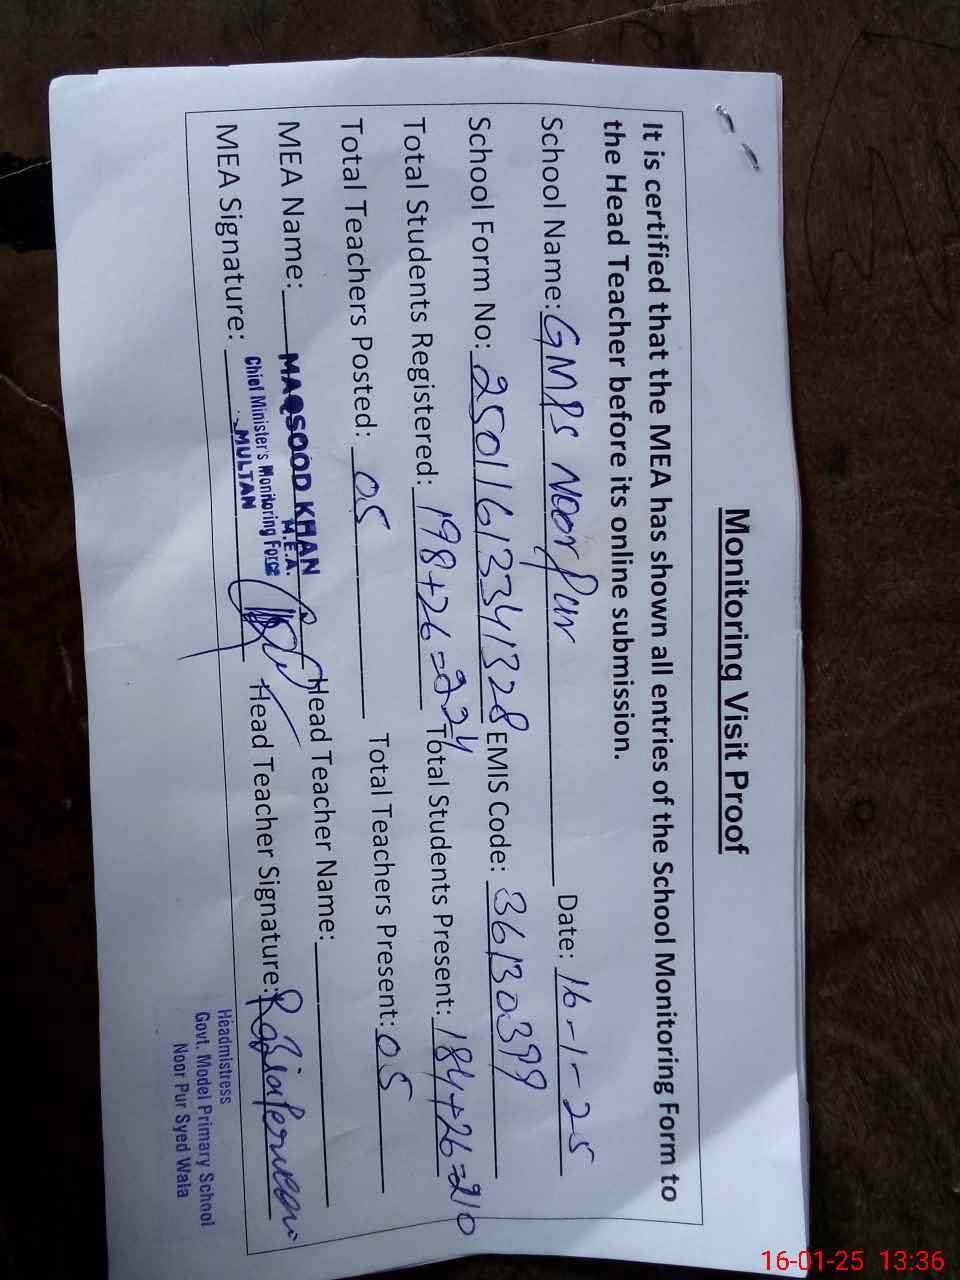 Monitoring Visit Proof
It is certified that the MEA has shown all entries of the School Monitoring Form to
the Head Teacher before its online submission.
School Name: GMPS Noor Pur Date: 16-1-25
School Form No: 25011613341328 EMIS Code: 36130399
Total Students Registered: 198+26=224 Total Students Present: 184+26=210
Total Teachers Posted: 05 Total Teachers Present: 05
MEA Name: MAQSOOD KHAN Head Teacher Name:
M.E.A.
Chief Minister's Monitoring Force
MULTAN
MEA Signature: Head Teacher Signature:
Headmistress
Govt. Model Primary School
Noor Pur Syed Wala
16-01-25 13:36